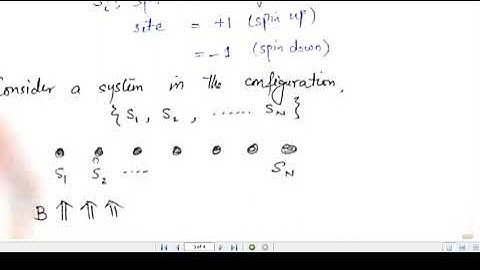 site = +1 (spin up)
= -1 (spin down)
Consider a system in the configuration,
{ S₁, S₂, ...... S_N }
S₁ S₂ .... S_N
B ⇑ ⇑ ⇑